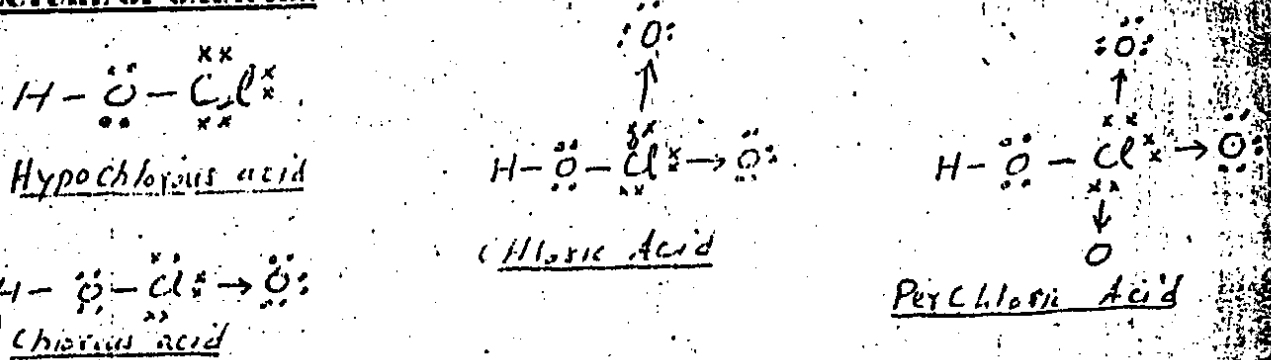 H – O – Cl
Hypochlorous acid
H – O – Cl → O
Chlorous acid
O
↑
H – O – Cl → O
Chloric Acid
O
↑
H – O – Cl → O
↓
O
PerChloric Acid